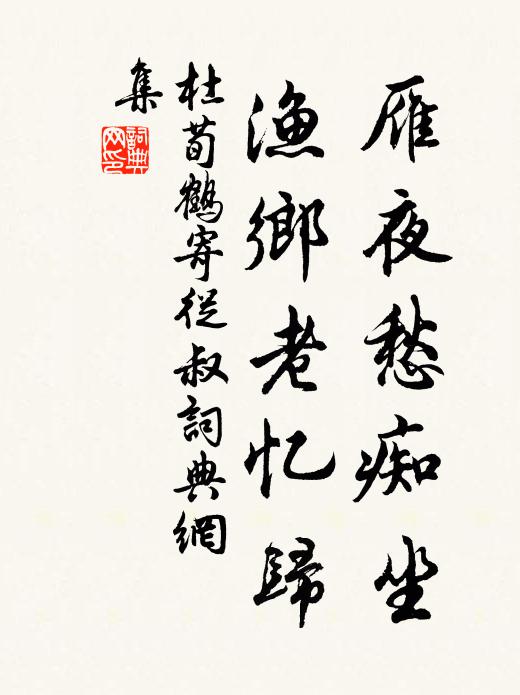 雁夜愁痴坐
渔鄉老忆歸
杜荀鶴寄從叔詞典網
集
詞典網印